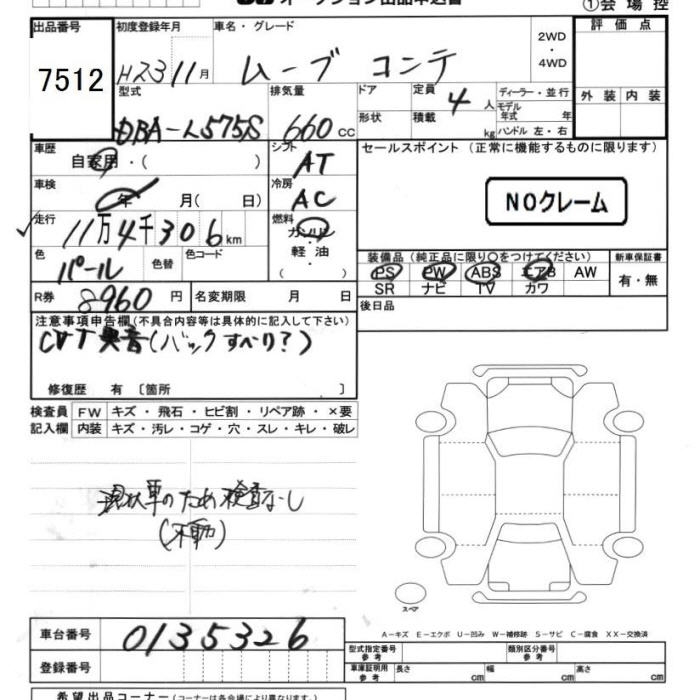 オークション出品申込書
①会場控
出品番号 初度登録年月 車名・グレード 評価点
7512 H23 11月 ムーブ コンテ 2WD・4WD
型式 排気量 ドア 定員 4人 ディーラー・並行 外装 内装
DBA-L575S 660cc 形状 積載 kg モデル年式 年 ハンドル 左・右
車歴 自家用・( ) シフト AT セールスポイント (正常に機能するものに限ります)
車検 年 月(日) 冷房 AC NOクレーム
走行 11万4千306km 燃料 ガソリン・軽油・
色 パール 色替 色コード 装備品(純正品に限り○をつけてください) 新車保証書
PS PW ABS エアB AW 有・無
SR ナビ TV カワ
R券 8960円 名変期限 月 日 後日品
注意事項申告欄(不具合内容等は具体的に記入して下さい)
CVT異音(バックすべり?)
修復歴 有 〔箇所 〕
検査員 FW キズ・飛石・ヒビ割・リペア跡・×要
記入欄 内装 キズ・汚レ・コゲ・穴・スレ・キレ・破レ
現状車のため検査なし
(不動)
スペア
A-キズ E-エクボ U-凹み W-補修跡 S-サビ C-腐食 XX-交換済
車台番号 0135326 型式指定番号 参考 類別区分番号 参考
登録番号 車庫証明用 参考 長さ cm 幅 cm 高さ cm
希望出品コーナー(コーナーは各会場により異なります。)